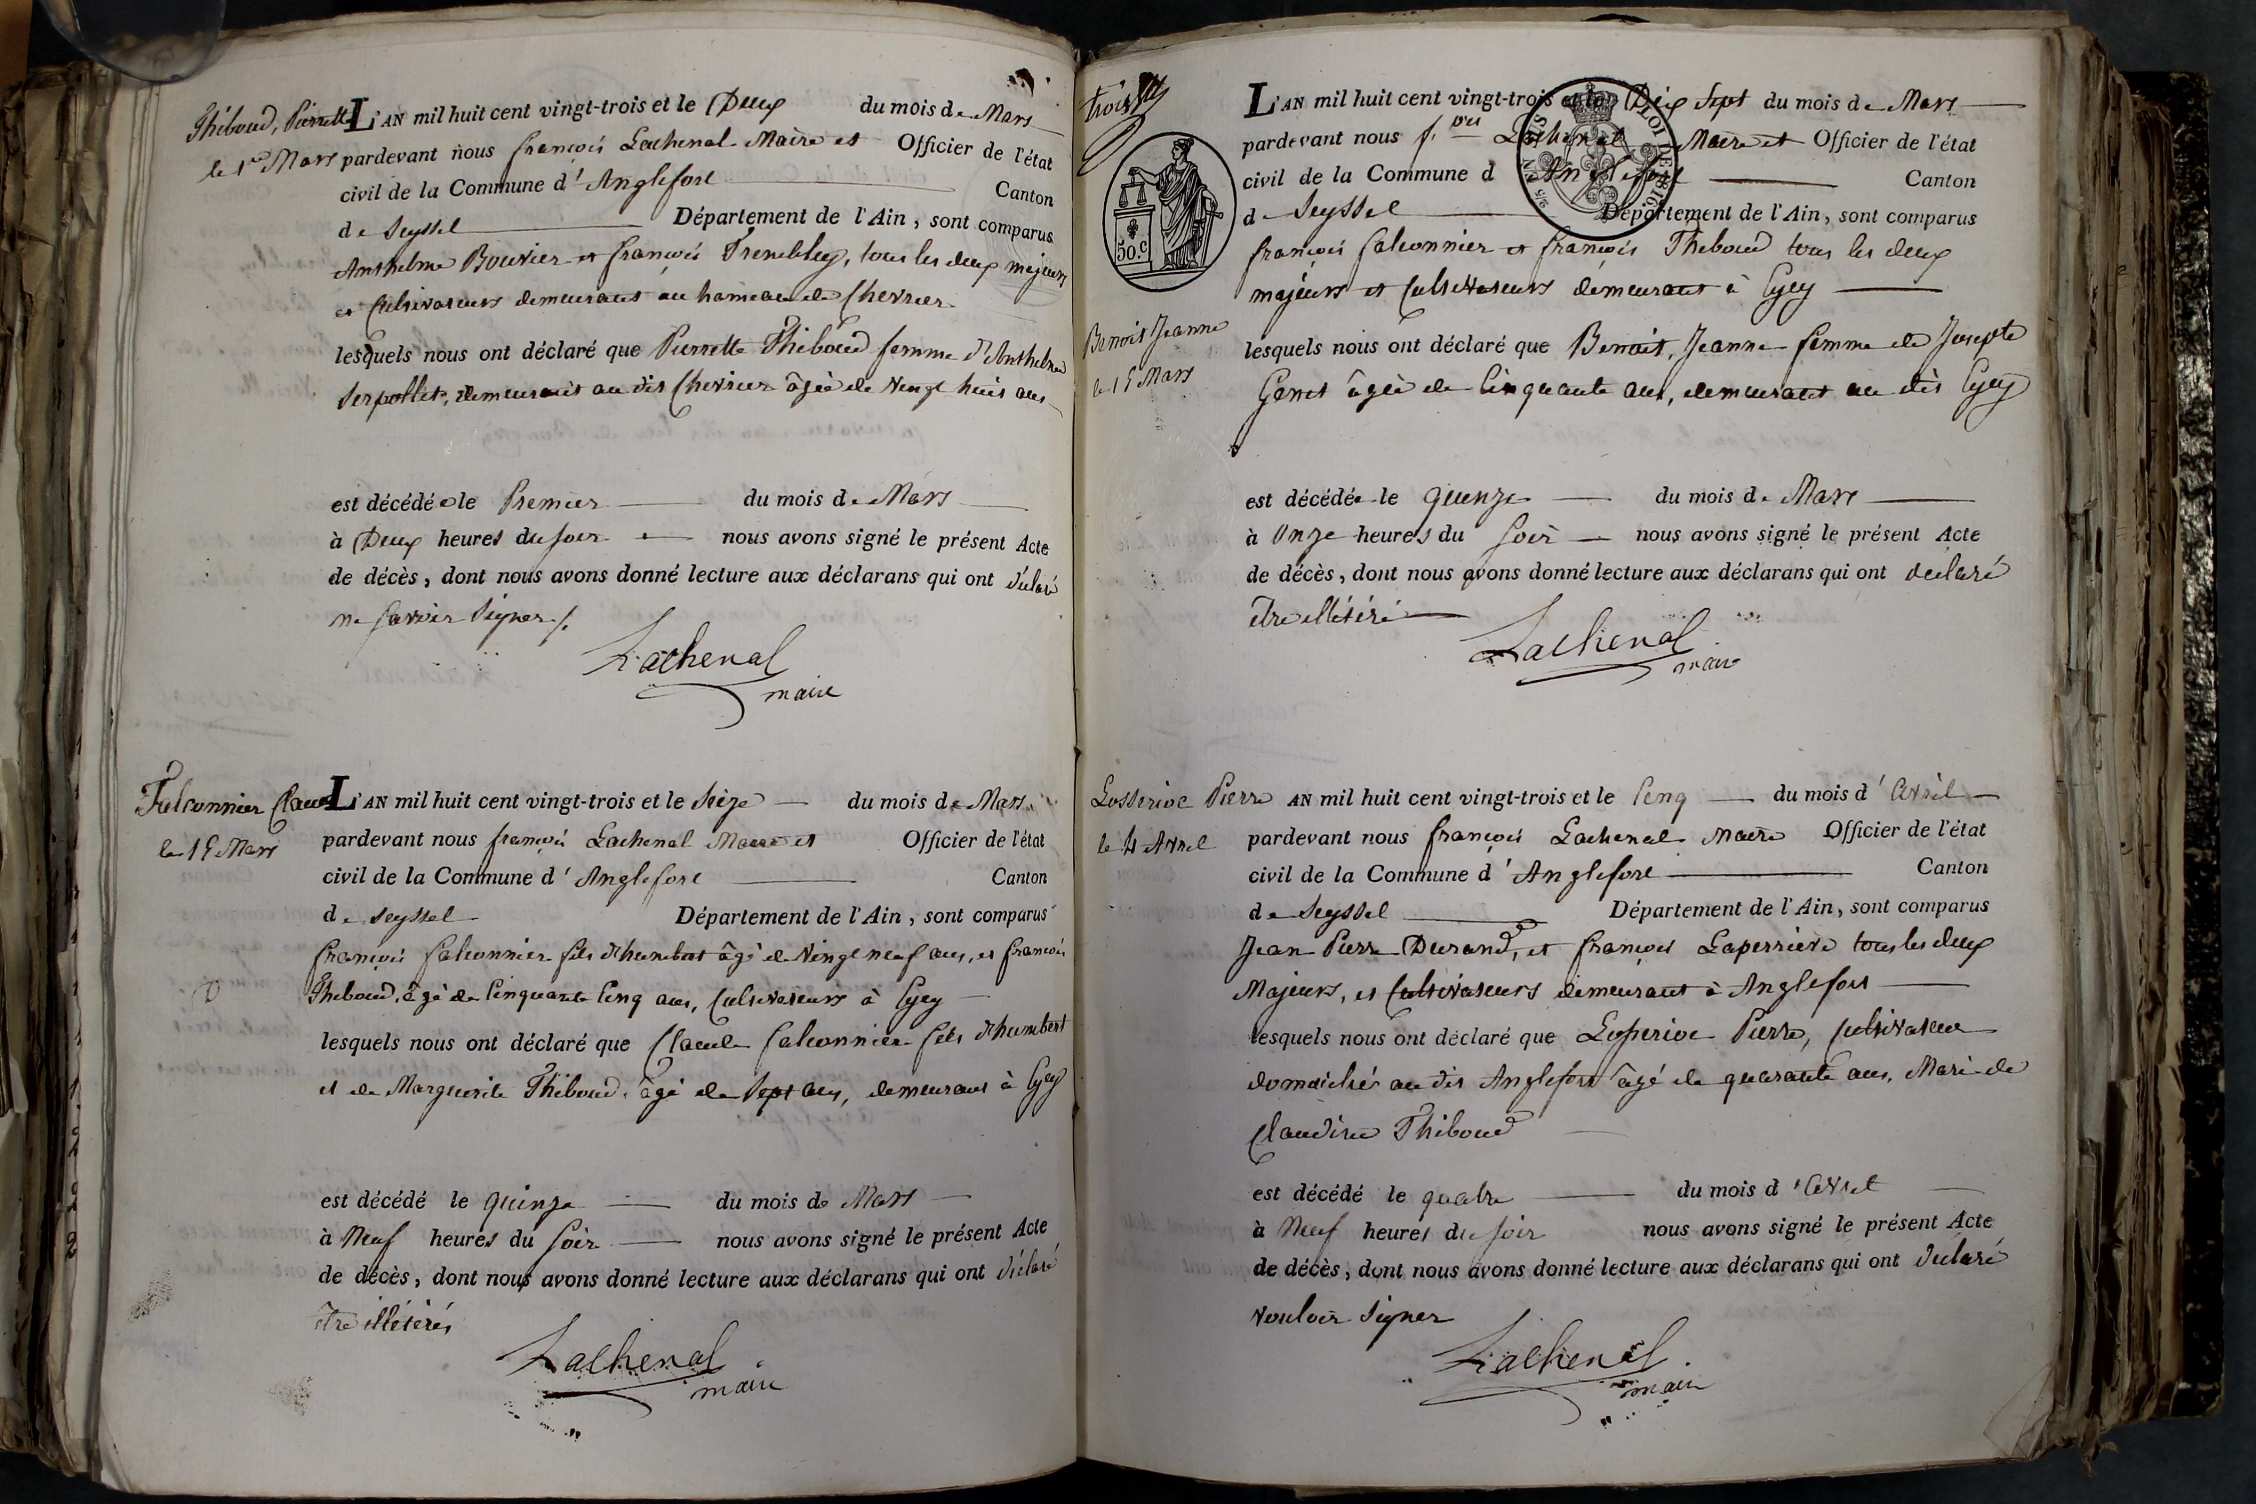 Thiboud, Pierrette
le 1er Mars
L'AN mil huit cent vingt-trois et le Deux du mois de Mars
pardevant nous françois Lachenal Maire et Officier de l'état
civil de la Commune d'Anglefort Canton
de Seyssel Département de l'Ain, sont comparus
Anthelme Bouvier et françois Trembley, tous les deux majeurs
et Cultivateurs demeurant au hameau de Chevrier
lesquels nous ont déclaré que Pierrette Thiboud femme d'Anthelme
Serpollet, demeurant au dit Chevrier âgée de Vingt huit ans
est décédée le Premier du mois de Mars
à Deux heures du soir nous avons signé le présent Acte
de décès, dont nous avons donné lecture aux déclarans qui ont déclaré
ne savoir Signer /.
Lachenal
maire
Falconnier Claude
le 15 Mars
L'AN mil huit cent vingt-trois et le Seize du mois de Mars
pardevant nous françois Lachenal Maire et Officier de l'état
civil de la Commune d'Anglefort Canton
de Seyssel Département de l'Ain, sont comparus
françois falconnier fils d'humbert âgé de Vingt neuf ans, et françois
Thiboud, âgé de Cinquante Cinq ans, Cultivateurs à Eyey
lesquels nous ont déclaré que Claude falconnier fils d'humbert
et de Marguerite Thiboud, âgé de Sept ans, demeurant à Eyey
est décédé le quinze du mois de Mars
à Neuf heures du soir nous avons signé le présent Acte
de décès, dont nous avons donné lecture aux déclarans qui ont déclaré
être illétérés
Lachenal
maire
trois
50.C
LOI DE 1816
L'AN mil huit cent vingt-trois et le Dix Sept du mois de Mars
pardevant nous f.çois Lachenal Maire et Officier de l'état
civil de la Commune d Anglefort Canton
de Seyssel Département de l'Ain, sont comparus
françois falconnier et françois Thiboud tous les deux
majeurs et Cultivateurs demeurant à Eyey
Benoit Jeanne
le 15 Mars
lesquels nous ont déclaré que Benoit, Jeanne femme de Josepte
Genet âgée de Cinquante ans, demeurant au dit Eyey
est décédée le quinze du mois de Mars
à Onze heures du Soir nous avons signé le présent Acte
de décès, dont nous avons donné lecture aux déclarans qui ont declaré
être illétéré
Lachenal
maire
Losserioe Pierre
le 4 Avril
AN mil huit cent vingt-trois et le Cinq du mois d'Avril
pardevant nous françois Lachenal maire Officier de l'état
civil de la Commune d'Anglefort Canton
de Seyssel Département de l'Ain, sont comparus
Jean Pierre Durand, et françois Laperriere tous les deux
Majeurs, et Cultivateurs demeurant à Anglefort
lesquels nous ont déclaré que Losserioe Pierre, Cultivateur
domicilié au dit Anglefort âgé de quarante ans, Mari de
Claudine Thiboud
est décédé le quatre du mois d'Avril
à Neuf heures du soir nous avons signé le présent Acte
de décès, dont nous avons donné lecture aux déclarans qui ont declaré
vouloir signer
Lachenal
maire